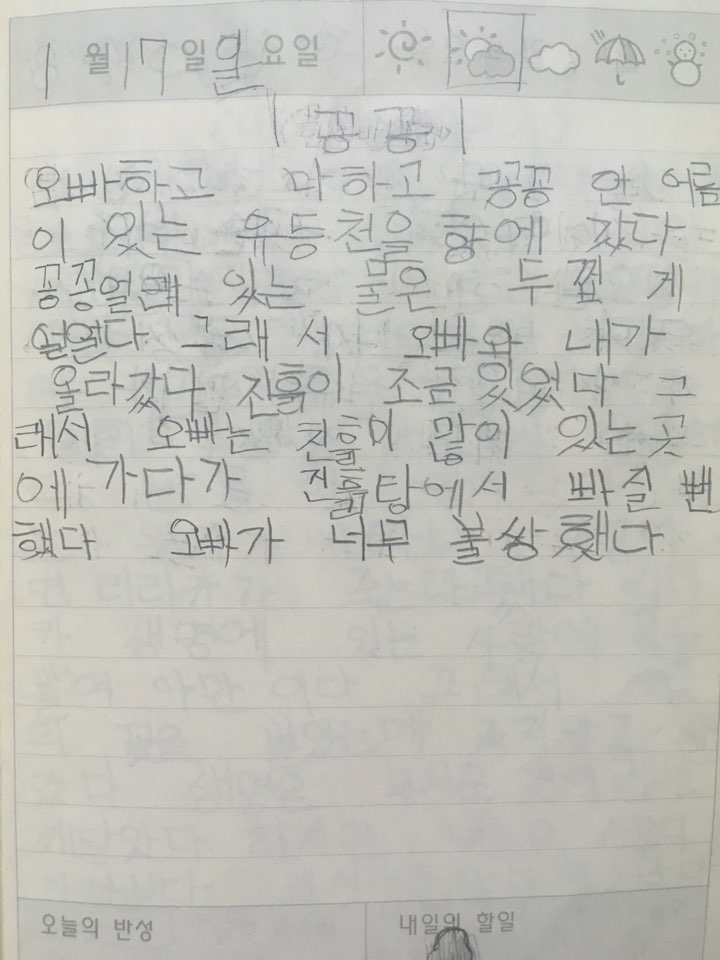 1 월 17 일 일 요일
꽁 꽁
오빠하고 마하고 꽁꽁 안 어름
이 있는 유등천을 향에 갔다
꽁꽁얼 있는 물은 두껍게
얼다 그래서 오빠와 내가
올라갔다 진흙이 조금 있었다 그
래서 오빠는 진흙이 많이 있는 곳
에 가다가 진흙탕에서 빠질 뻔
했다 오빠가 너무 불쌍했다
오늘의 반성 내일의 할일